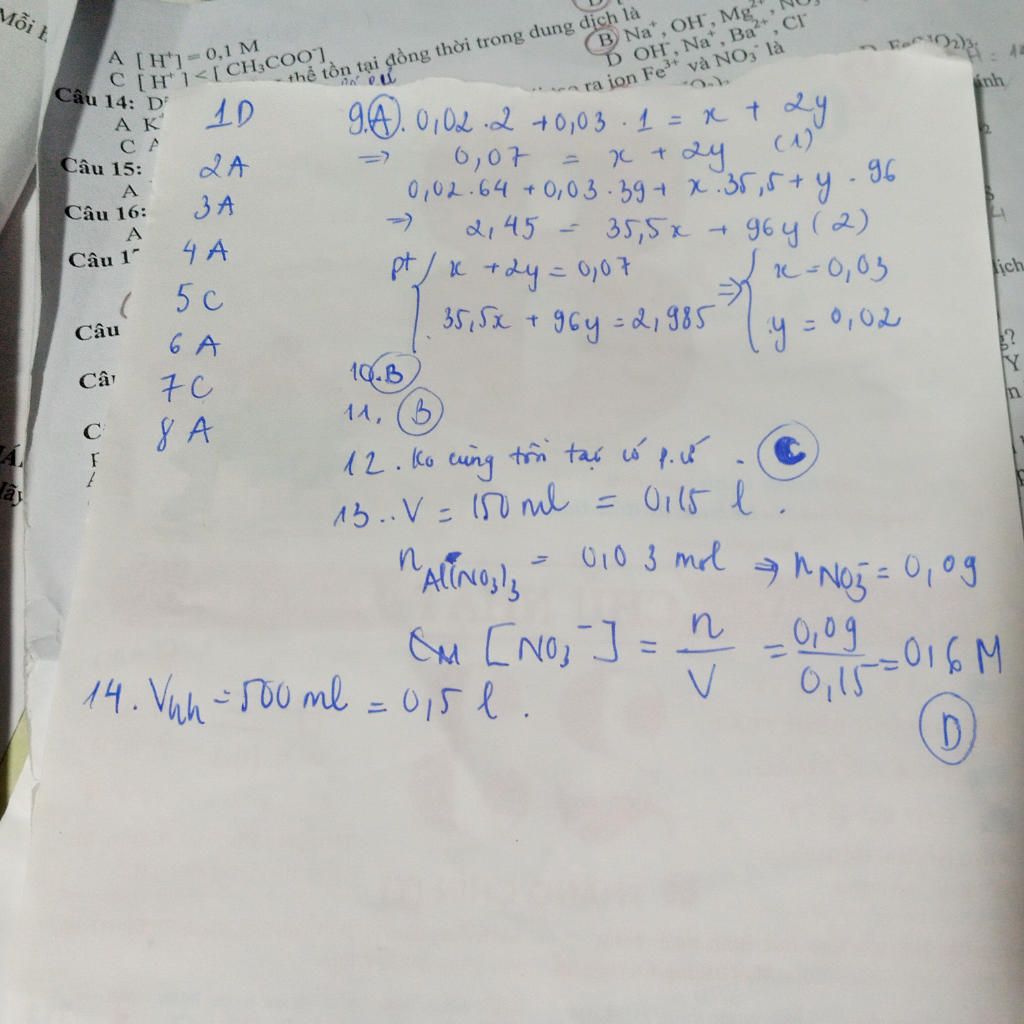 Mỗi
A [H⁺] = 0,1 M
C [H⁺] < [CH₃COO⁻]
thể tồn tại đồng thời trong dung dịch là
B Na⁺, OH⁻, Mg²⁺,
D OH⁻, Na⁺, Ba²⁺, Cl⁻
ra ion Fe³⁺ và NO₃⁻ là
Câu 14:
A K⁺
C
Câu 15:
A
Câu 16:
A
Câu
Câu
1D
2A
3A
4A
5C
6A
7C
8A
9.A. 0,02 . 2 + 0,03 . 1 = x + 2y
=> 0,07 = x + 2y (1)
0,02.64 + 0,03.39 + x.35,5 + y . 96
=> 2,45 = 35,5x + 96y (2)
pt { x + 2y = 0,07 => { x = 0,03
35,5x + 96y = 2,985 y = 0,02
10.B
11. B
12. Ko cùng tồn tại có p.ứ . C
13.. V = 150 ml = 0,15 l .
n Al(NO₃)₃ = 0,03 mol => n NO₃⁻ = 0,09
CM [NO₃⁻] = n/V = 0,09/0,15 = 0,6 M
D
14. Vhh = 500 ml = 0,5 l .